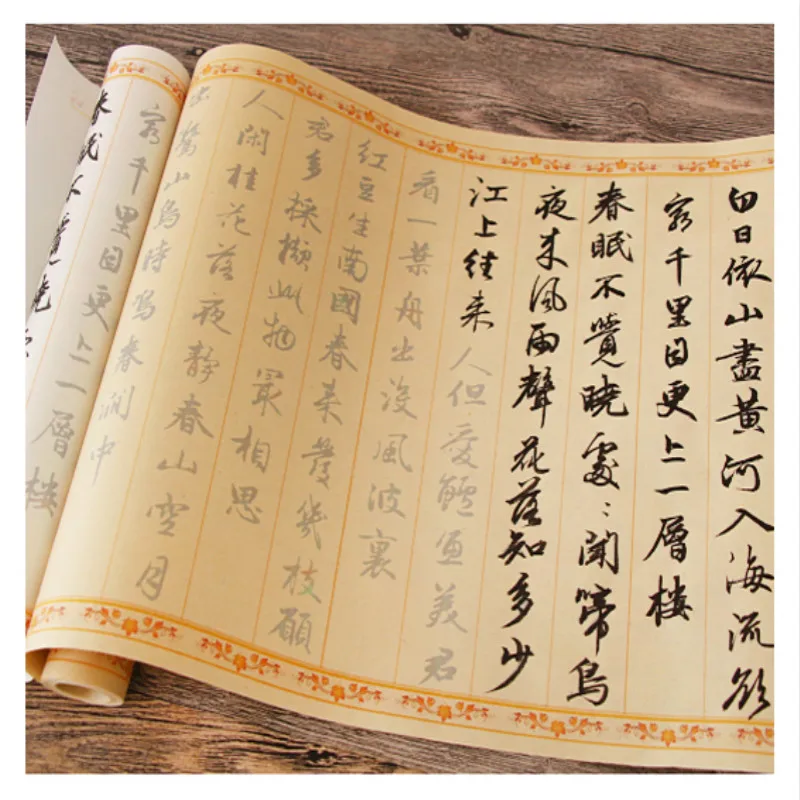 白日依山盡黃河入海流欲
窮千里目更上一層樓
春眠不覺曉處々聞啼鳥
夜來風雨聲花落知多少
江上往來人但愛鱸魚美君
看一葉舟出沒風波裏
紅豆生南國春來發幾枝願
君多採擷此物最相思
人閑桂花落夜靜春山空月
出驚山鳥時鳴春澗中
窮千里目更上一層樓
春眠不覺曉